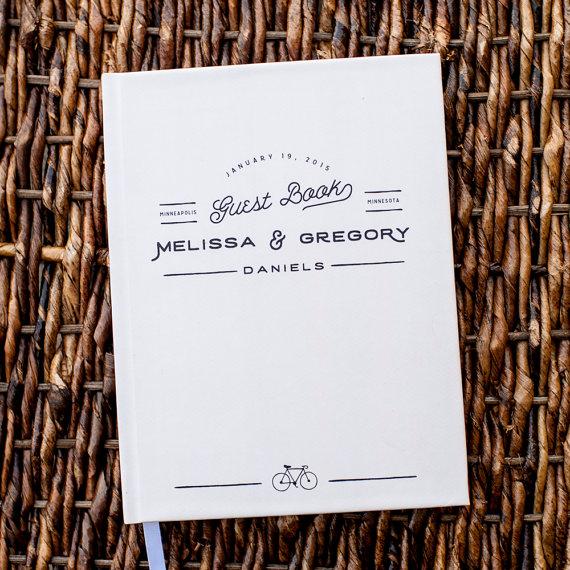 JANUARY 19, 2015
Guest Book
MINNEAPOLIS
MINNESOTA
MELISSA & GREGORY
DANIELS